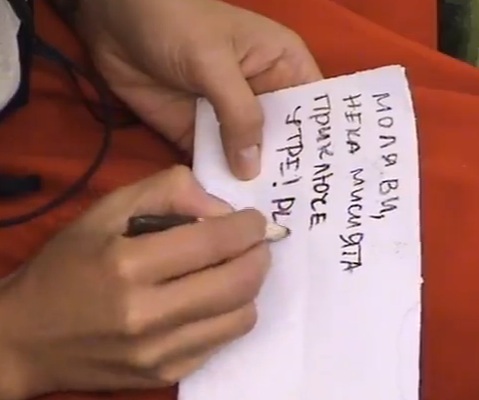 МОЛЯ ВИ,
НЕКА МИСИЯТА
ПРИКЛЮЧЕ
УТРЕ! Р